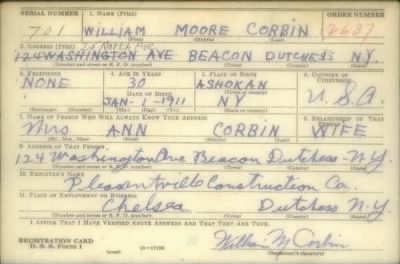 SERIAL NUMBER 1. NAME (Print) ORDER NUMBER
701 WILLIAM MOORE CORBIN 2637
2. ADDRESS (Print) 20 North Ave
124 WASHINGTON AVE BEACON DUTCHESS N.Y.
(Number and street or R. F. D. number) (Town) (County) (State)
3. TELEPHONE 4. AGE IN YEARS 5. PLACE OF BIRTH 6. COUNTRY OF CITIZENSHIP
NONE 30 ASHOKAN
DATE OF BIRTH (Town or county)
JAN-1-1911 NY U.S.A.
(Exchange) (Number) (Mo.) (Day) (Yr.) (State or country)
7. NAME OF PERSON WHO WILL ALWAYS KNOW YOUR ADDRESS 8. RELATIONSHIP OF THAT PERSON
Mrs. ANN CORBIN WIFE
(Mr., Mrs., Miss) (First) (Middle) (Last)
9. ADDRESS OF THAT PERSON
124 Washington Ave Beacon Dutchess - N.Y.
(Number and street or R. F. D. number) (Town) (County) (State)
10. EMPLOYER'S NAME
Pleasantville Construction Co.
11. PLACE OF EMPLOYMENT OR BUSINESS
Chelsea Dutchess N.Y.
(Number and street or R. F. D. number) (Town) (County) (State)
I AFFIRM THAT I HAVE VERIFIED ABOVE ANSWERS AND THAT THEY ARE TRUE.
REGISTRATION CARD
D. S. S. Form 1 William M Corbin
(Registrant's signature)